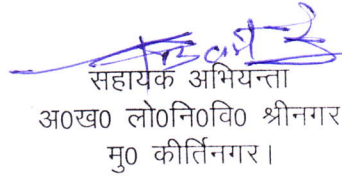 सहायक अभियन्ता
अ०ख० लो०नि०वि० श्रीनगर
मु० कीर्तिनगर।